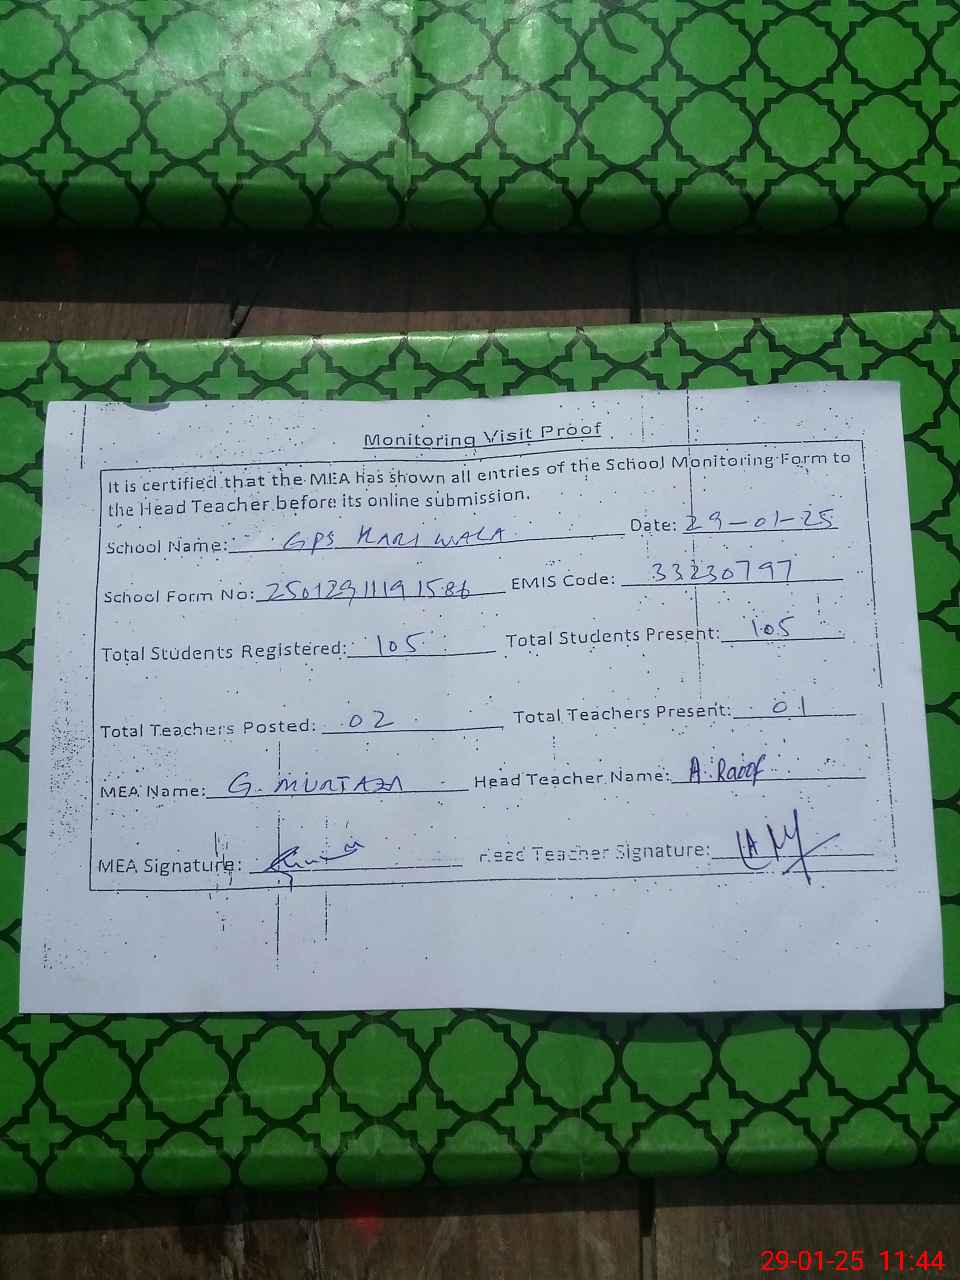 Monitoring Visit Proof
It is certified that the MEA has shown all entries of the School Monitoring Form to
the Head Teacher before its online submission.
School Name: GPS KARI WALA Date: 29-01-25
School Form No: 25012911191586 EMIS Code: 33230797
Total Students Registered: 105 Total Students Present: 105
Total Teachers Posted: 02 Total Teachers Present: 01
MEA Name: G. MURTAZA Head Teacher Name: A. Raoof
MEA Signature: Head Teacher Signature:
29-01-25 11:44